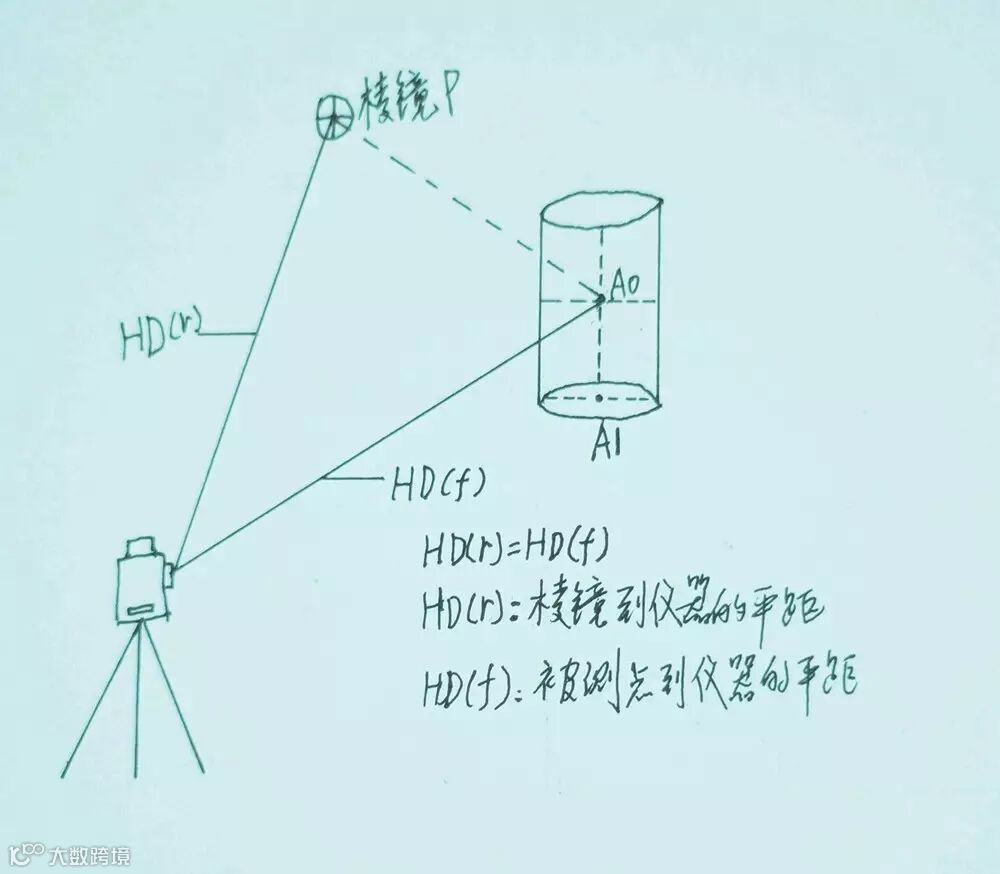 棱镜P
A0
HD(r)
A1
HD(f)
HD(r)=HD(f)
HD(r):棱镜到仪器的平距
HD(f):被测点到仪器的平距
大数跨境